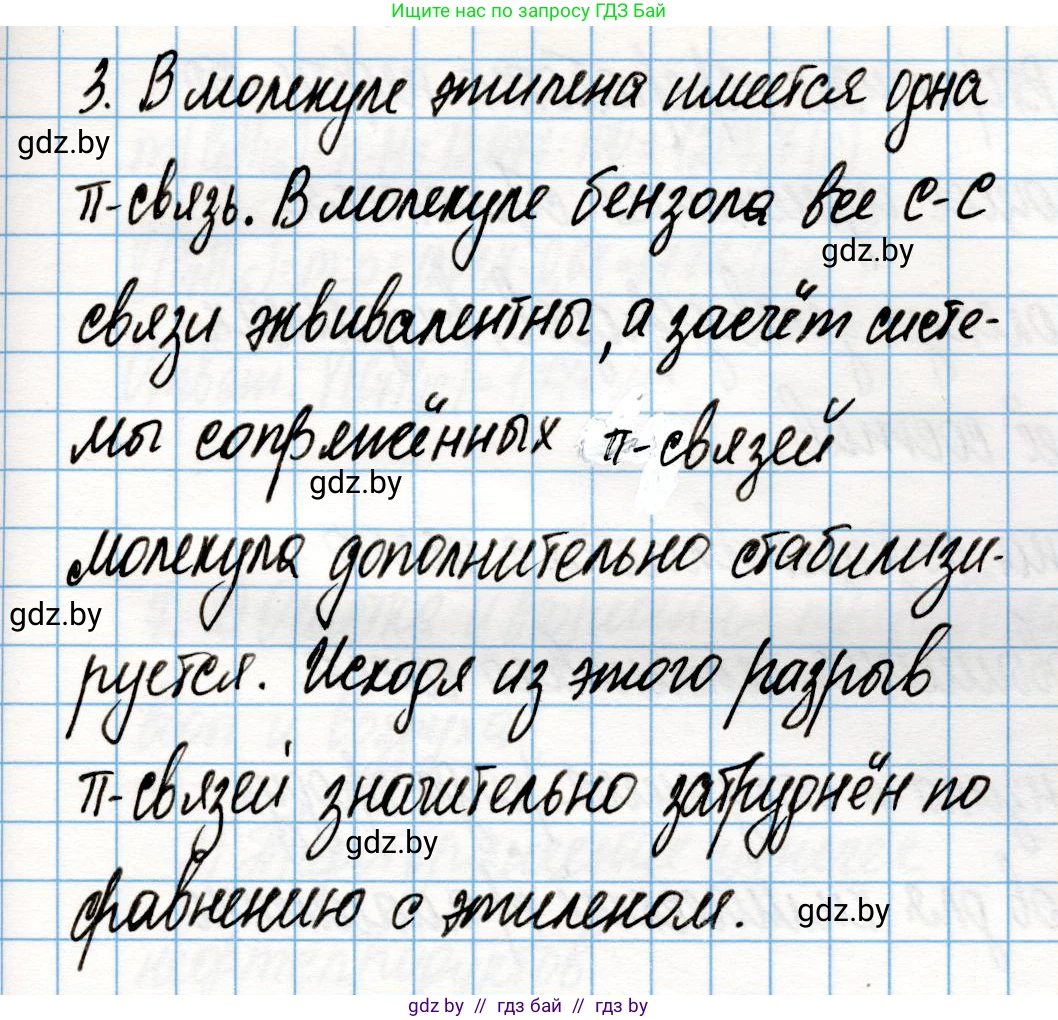 Ищите нас по запросу ГДЗ Бай
3. В молекуле этилена имеется одна
gdz.by
π-связь. В молекуле бензола все С-С
gdz.by
связи эквивалентны, а засчёт систе-
мы сопряжённых π-связей
gdz.by
молекула дополнительно стабилизи-
gdz.by
руется. Исходя из этого разрыв
π-связей значительно затруднён по
gdz.by
сравнению с этиленом.
gdz.by
gdz.by // гдз бай // гдз by